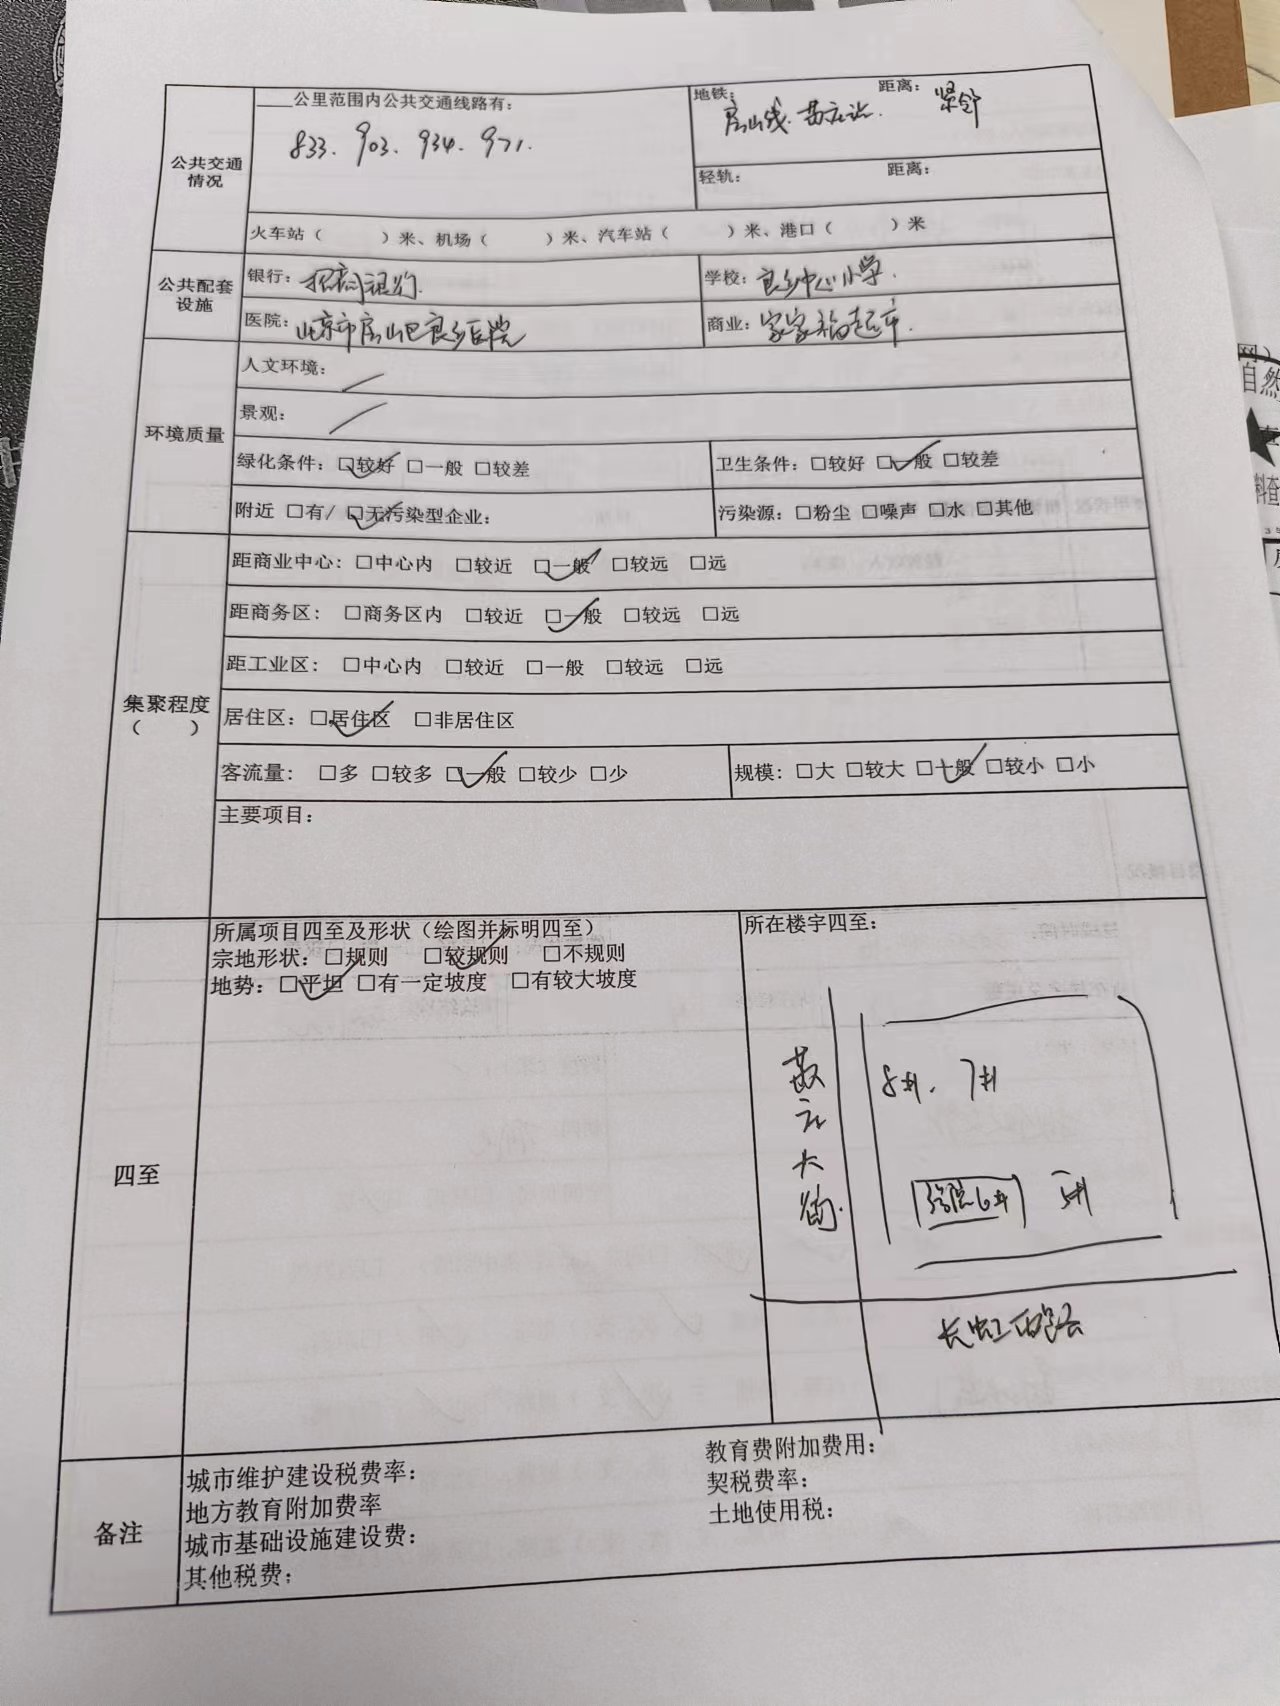 ____公里范围内公共交通线路有:
地铁: 房山线.苏庄站. 距离: 紧邻
833. 903. 934. 971.
公共交通情况
轻轨: 距离:
火车站( )米、机场( )米、汽车站( )米、港口( )米
公共配套设施
银行: 招商银行. 学校: 良乡中心小学.
医院: 北京市房山区良乡医院 商业: 家家福超市.
环境质量
人文环境: /
景观: /
绿化条件: □较好 □一般 □较差 卫生条件: □较好 □一般 □较差
附近 □有/ □无污染型企业: 污染源: □粉尘 □噪声 □水 □其他
集聚程度( )
距商业中心: □中心内 □较近 □一般 □较远 □远
距商务区: □商务区内 □较近 □一般 □较远 □远
距工业区: □中心内 □较近 □一般 □较远 □远
居住区: □居住区 □非居住区
客流量: □多 □较多 □一般 □较少 □少 规模: □大 □较大 □一般 □较小 □小
主要项目:
四至
所属项目四至及形状(绘图并标明四至) 所在楼宇四至:
宗地形状: □规则 □较规则 □不规则
地势: □平坦 □有一定坡度 □有较大坡度
苏庄大街.
8#. 7#
6# 5#
长虹西路
备注
城市维护建设税费率: 教育费附加费用:
地方教育附加费率 契税费率:
城市基础设施建设费: 土地使用税:
其他税费;
自然